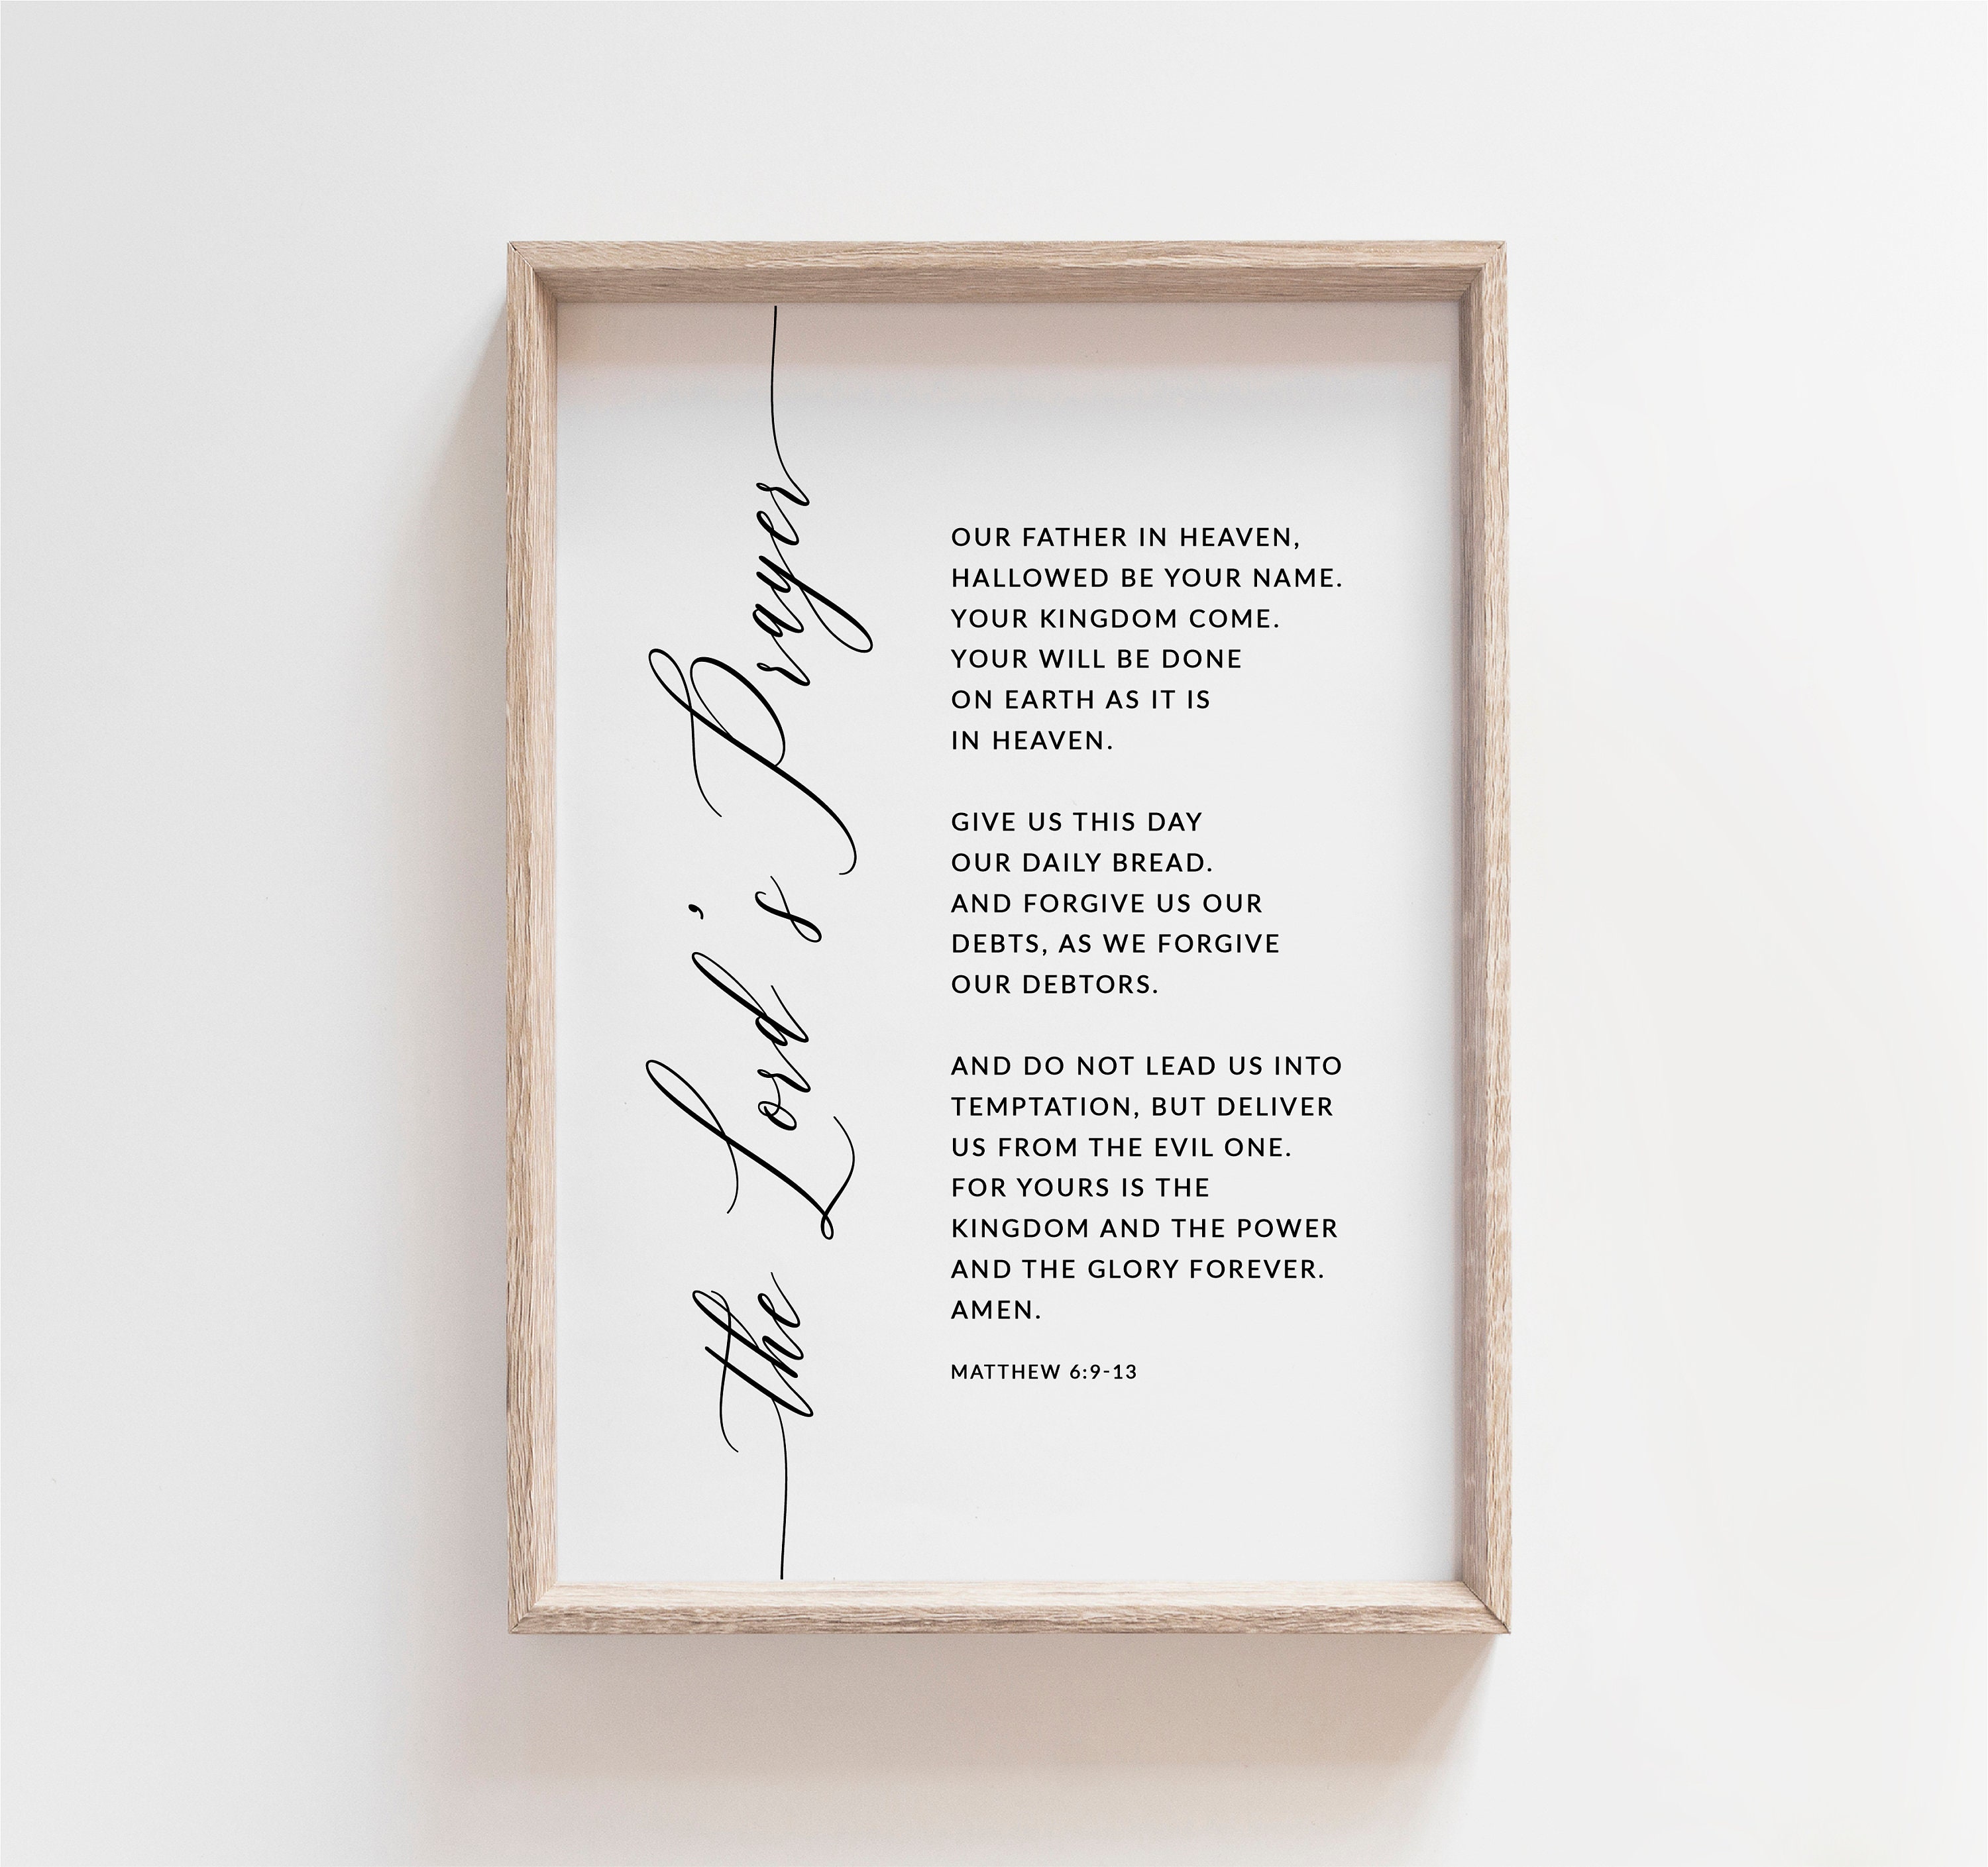 the Lord's Prayer
OUR FATHER IN HEAVEN,
HALLOWED BE YOUR NAME.
YOUR KINGDOM COME.
YOUR WILL BE DONE
ON EARTH AS IT IS
IN HEAVEN.
GIVE US THIS DAY
OUR DAILY BREAD.
AND FORGIVE US OUR
DEBTS, AS WE FORGIVE
OUR DEBTORS.
AND DO NOT LEAD US INTO
TEMPTATION, BUT DELIVER
US FROM THE EVIL ONE.
FOR YOURS IS THE
KINGDOM AND THE POWER
AND THE GLORY FOREVER.
AMEN.
MATTHEW 6:9-13